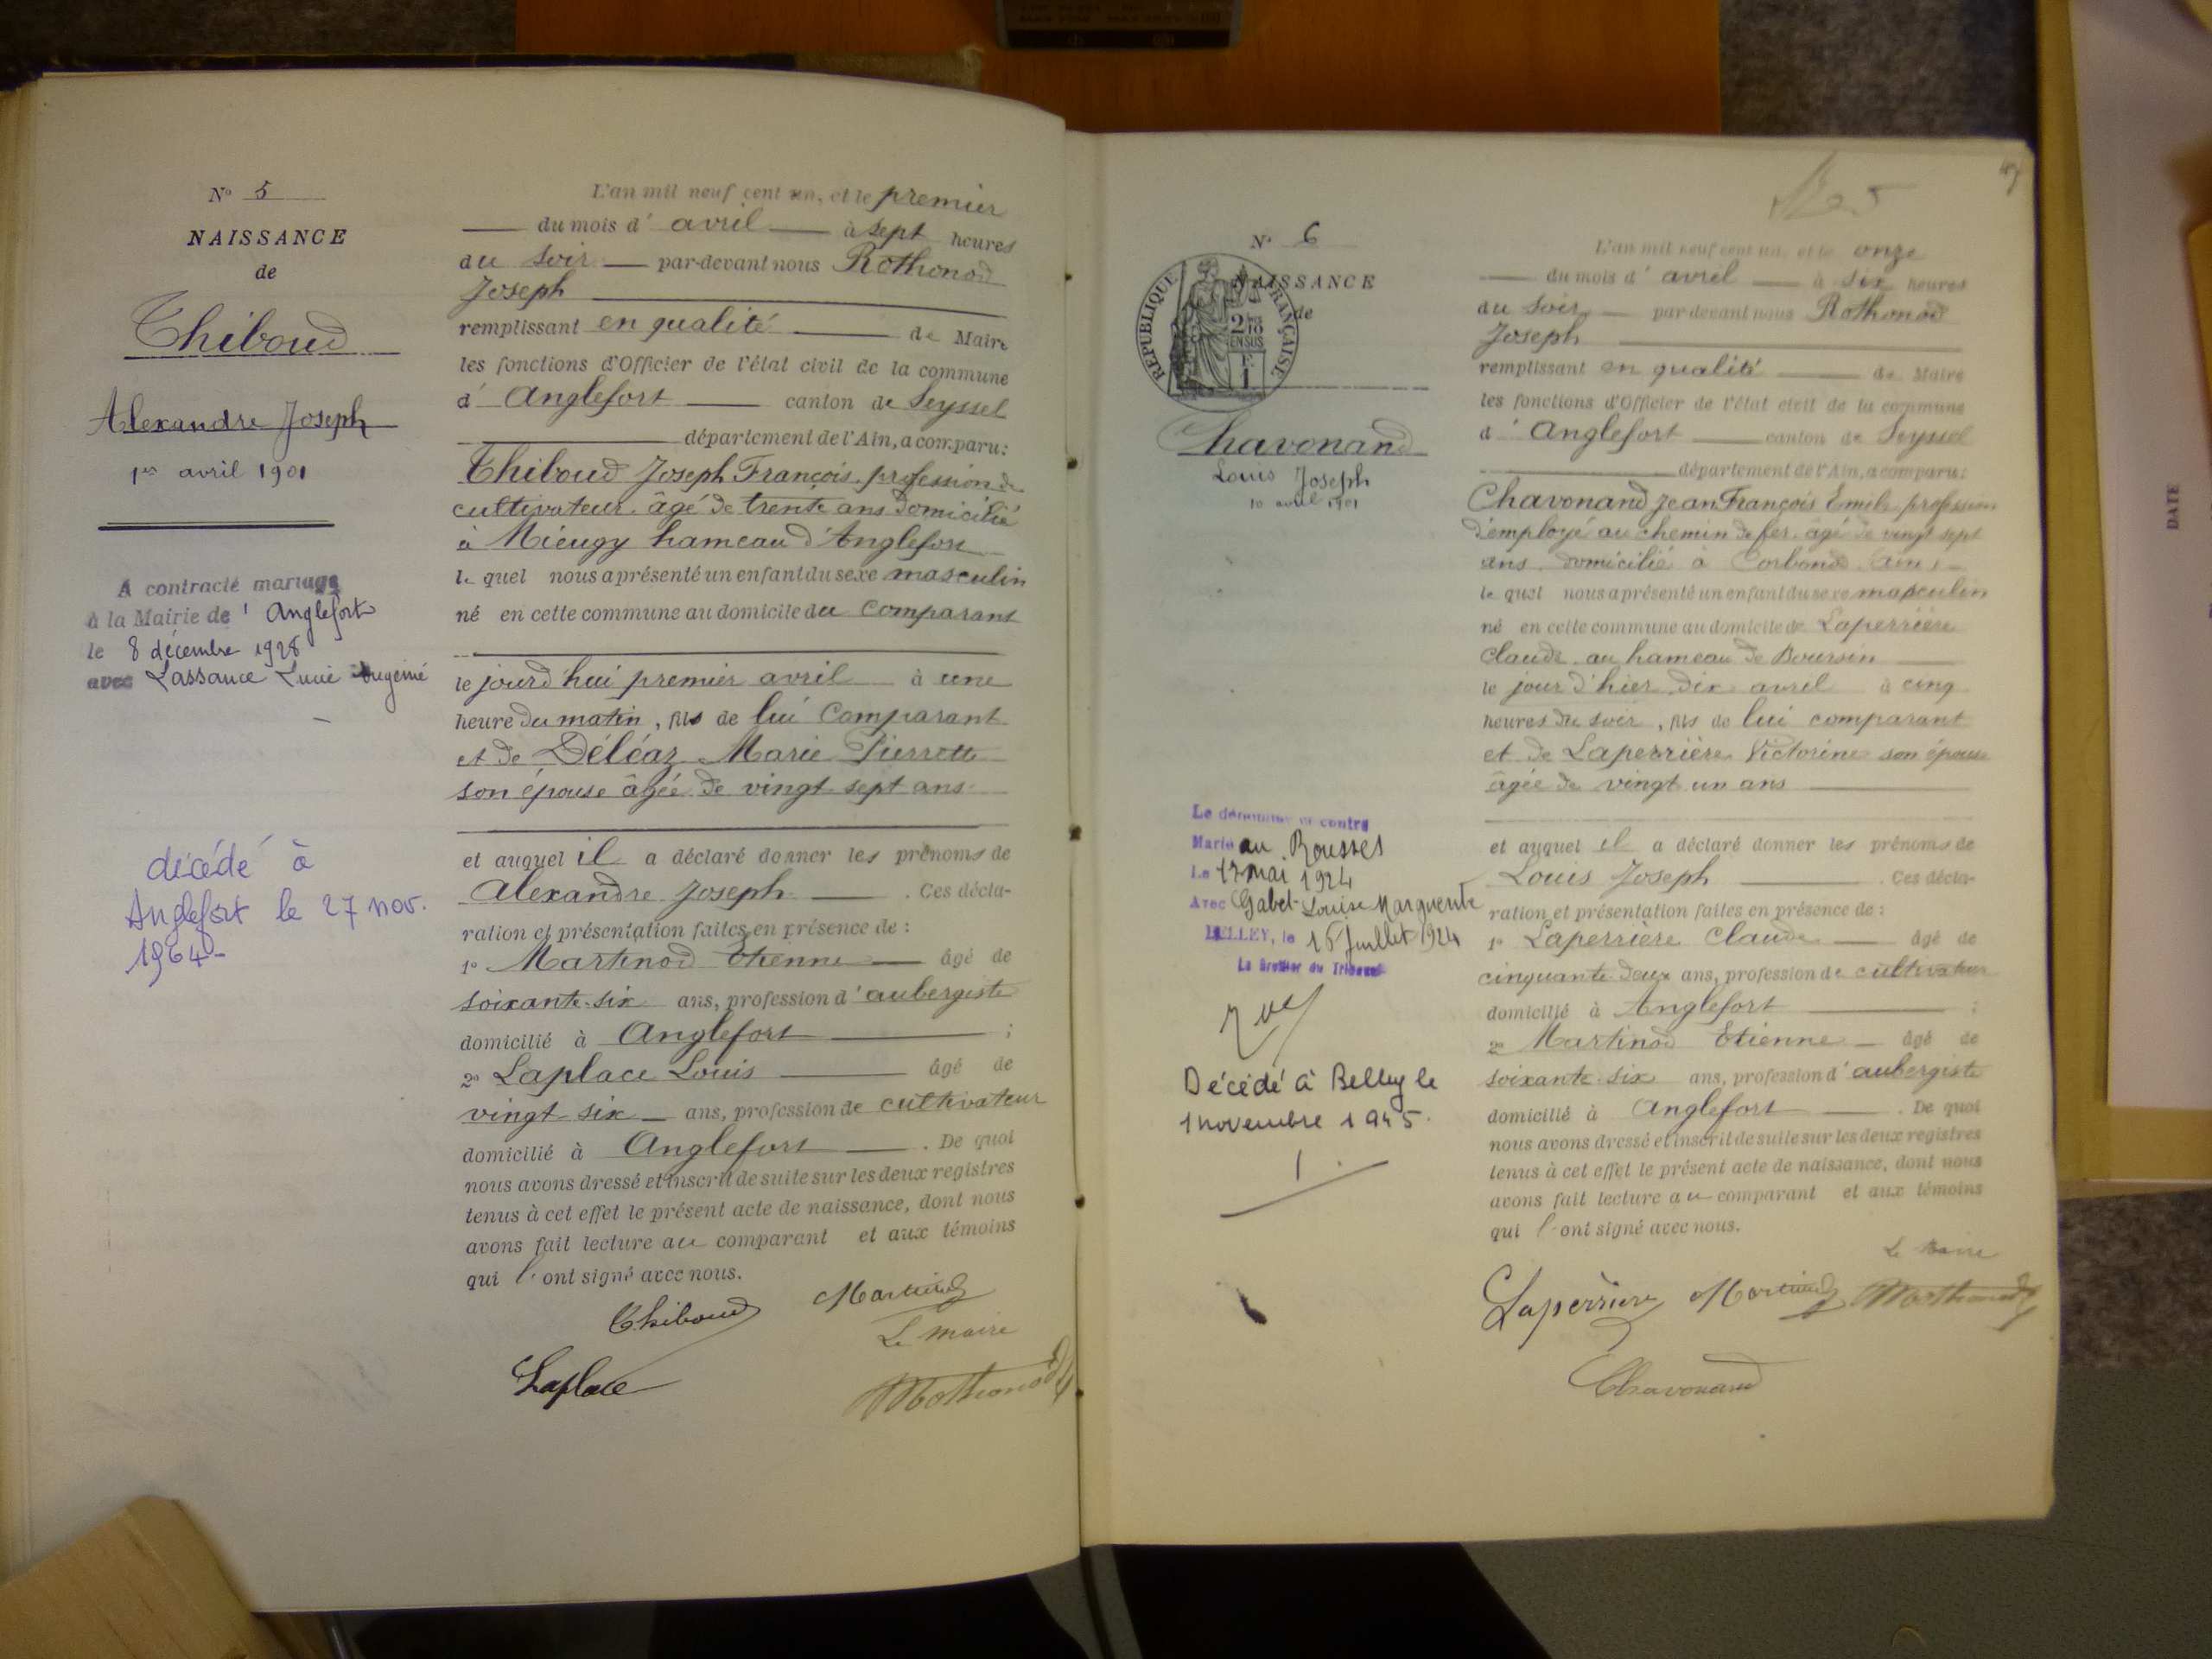 N° 5
NAISSANCE
de
Thiboud
Alexandre Joseph
1er avril 1901
A contracté mariage
à la Mairie de ' Anglefort
le 8 décembre 1928
avec Lassance Lucie Eugénie
décédé à
Anglefort le 27 nov.
1964
L'an mil neuf cent un, et le premier
du mois d' avril à sept heures
du soir par-devant nous Rothonod
Joseph
remplissant en qualité de Maire
les fonctions d'Officier de l'état civil de la commune
d' Anglefort canton de Seyssel
département de l'Ain, a comparu:
Thiboud Joseph François, profession de
cultivateur, âgé de trente ans domicilié
à Mieugy hameau d'Anglefort
le quel nous a présenté un enfant du sexe masculin
né en cette commune au domicile du comparant
le jourd'hui premier avril à une
heure du matin, fils de lui comparant
et de Déléaz Marie Pierrette
son épouse âgée de vingt sept ans
et auquel il a déclaré donner les prénoms de
Alexandre Joseph . Ces décla-
ration et présentation faites en présence de :
1° Martinod Etienne âgé de
soixante-six ans, profession d' aubergiste
domicilié à Anglefort ;
2° Laplace Louis âgé de
vingt six ans, profession de cultivateur
domicilié à Anglefort . De quoi
nous avons dressé et inscrit de suite sur les deux registres
tenus à cet effet le présent acte de naissance, dont nous
avons fait lecture au comparant et aux témoins
qui l'ont signé avec nous.
Thiboud Martinod
Le maire
Laplace Rothonod
N° 6
NAISSANCE
de
RÉPUBLIQUE FRANÇAISE
2/10
EN SUS
1
Chavonand
Louis Joseph
10 avril 1901
Le dénommé ci contre
Marié au Rousset
Le 17 mai 1924
Avec Gabet Louise Marguerite
BELLEY, le 16 Juillet 1924
Le Greffier du Tribunal
Décédé à Belley le
1 novembre 1945.
L'an mil neuf cent un, et le onze
du mois d' avril à six heures
du soir par-devant nous Rothonod
Joseph
remplissant en qualité de Maire
les fonctions d'Officier de l'état civil de la commune
d' Anglefort canton de Seyssel
département de l'Ain, a comparu:
Chavonand Jean François Emile, profession
d'employé au chemin de fer, âgé de vingt sept
ans, domicilié à Corbonod (Ain)
le quel nous a présenté un enfant du sexe masculin
né en cette commune au domicile de Laperrière
Claude au hameau de Boursin
le jour d'hier dix avril à cinq
heures du soir, fils de lui comparant
et de Laperrière Victorine son épouse
âgée de vingt un ans
et auquel il a déclaré donner les prénoms de
Louis Joseph . Ces décla-
ration et présentation faites en présence de :
1° Laperrière Claude âgé de
cinquante deux ans, profession de cultivateur
domicilié à Anglefort ;
2° Martinod Etienne âgé de
soixante six ans, profession d' aubergiste
domicilié à Anglefort . De quoi
nous avons dressé et inscrit de suite sur les deux registres
tenus à cet effet le présent acte de naissance, dont nous
avons fait lecture au comparant et aux témoins
qui l'ont signé avec nous.
Le Maire
Laperrière Martinod Rothonod
Chavonand
DATE